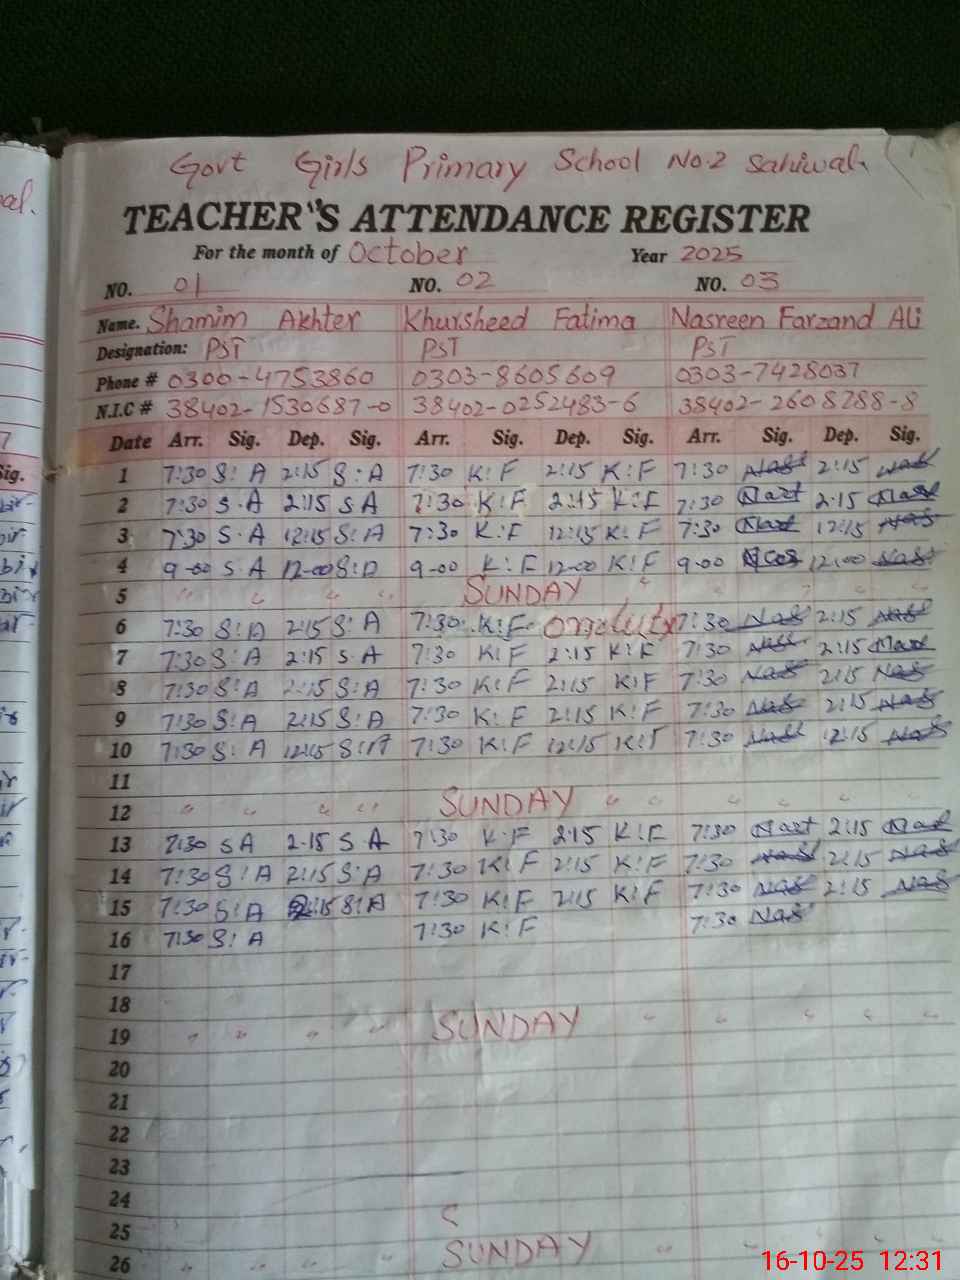 Govt Girls Primary School No.2 Sahiwal.
TEACHER'S ATTENDANCE REGISTER
For the month of October Year 2025
NO. 01 NO. 02 NO. 03
Name. Shamim Akhter Khursheed Fatima Nasreen Farzand Ali
Designation: PST PST PST
Phone # 0300-4753860 0303-8605609 0303-7428037
N.I.C # 38402-1530687-0 38402-0252483-6 38402-2608288-8
Date Arr. Sig. Dep. Sig. Arr. Sig. Dep. Sig. Arr. Sig. Dep. Sig.
1 7:30 S:A 2:15 S:A 7:30 K:F 2:15 K:F 7:30 2:15
2 7:30 S.A 2:15 S A 7:30 K:F 2:15 K:F 7:30 2:15
3 7:30 S.A 12:15 S:A 7:30 K:F 12:15 K:F 7:30 12:15
4 9-00 S.A 12-00 9-00 K:F 12-00 K:F 9-00 12:00
5 " " " " SUNDAY " " " " "
6 7:30 S:A 2:15 S:A 7:30 K:F onduty 7:30 Nas 2:15 Nas
7 7:30 S:A 2:15 S.A 7:30 K:F 2:15 K:F 7:30 2:15
8 7:30 S:A 2:15 S:A 7:30 K:F 2:15 K:F 7:30 Nas 2:15 Nas
9 7:30 S:A 2:15 S:A 7:30 K:F 2:15 K:F 7:30 Nas 2:15 Nas
10 7:30 S:A 12:15 S:A 7:30 K:F 12:15 K:F 7:30 12:15 Nas
11
12 " " " " SUNDAY " " " " " "
13 7:30 S A 2:15 S A 7:30 K:F 2:15 K:F 7:30 2:15
14 7:30 S:A 2:15 S:A 7:30 K:F 2:15 K:F 7:30 2:15
15 7:30 S:A 2:15 S:A 7:30 K:F 2:15 K:F 7:30 Nas 2:15 Nas
16 7:30 S:A 7:30 K:F 7:30 Nas
17
18
19 " " " " SUNDAY " " " " "
20
21
22
23
24
25
26 SUNDAY
16-10-25 12:31